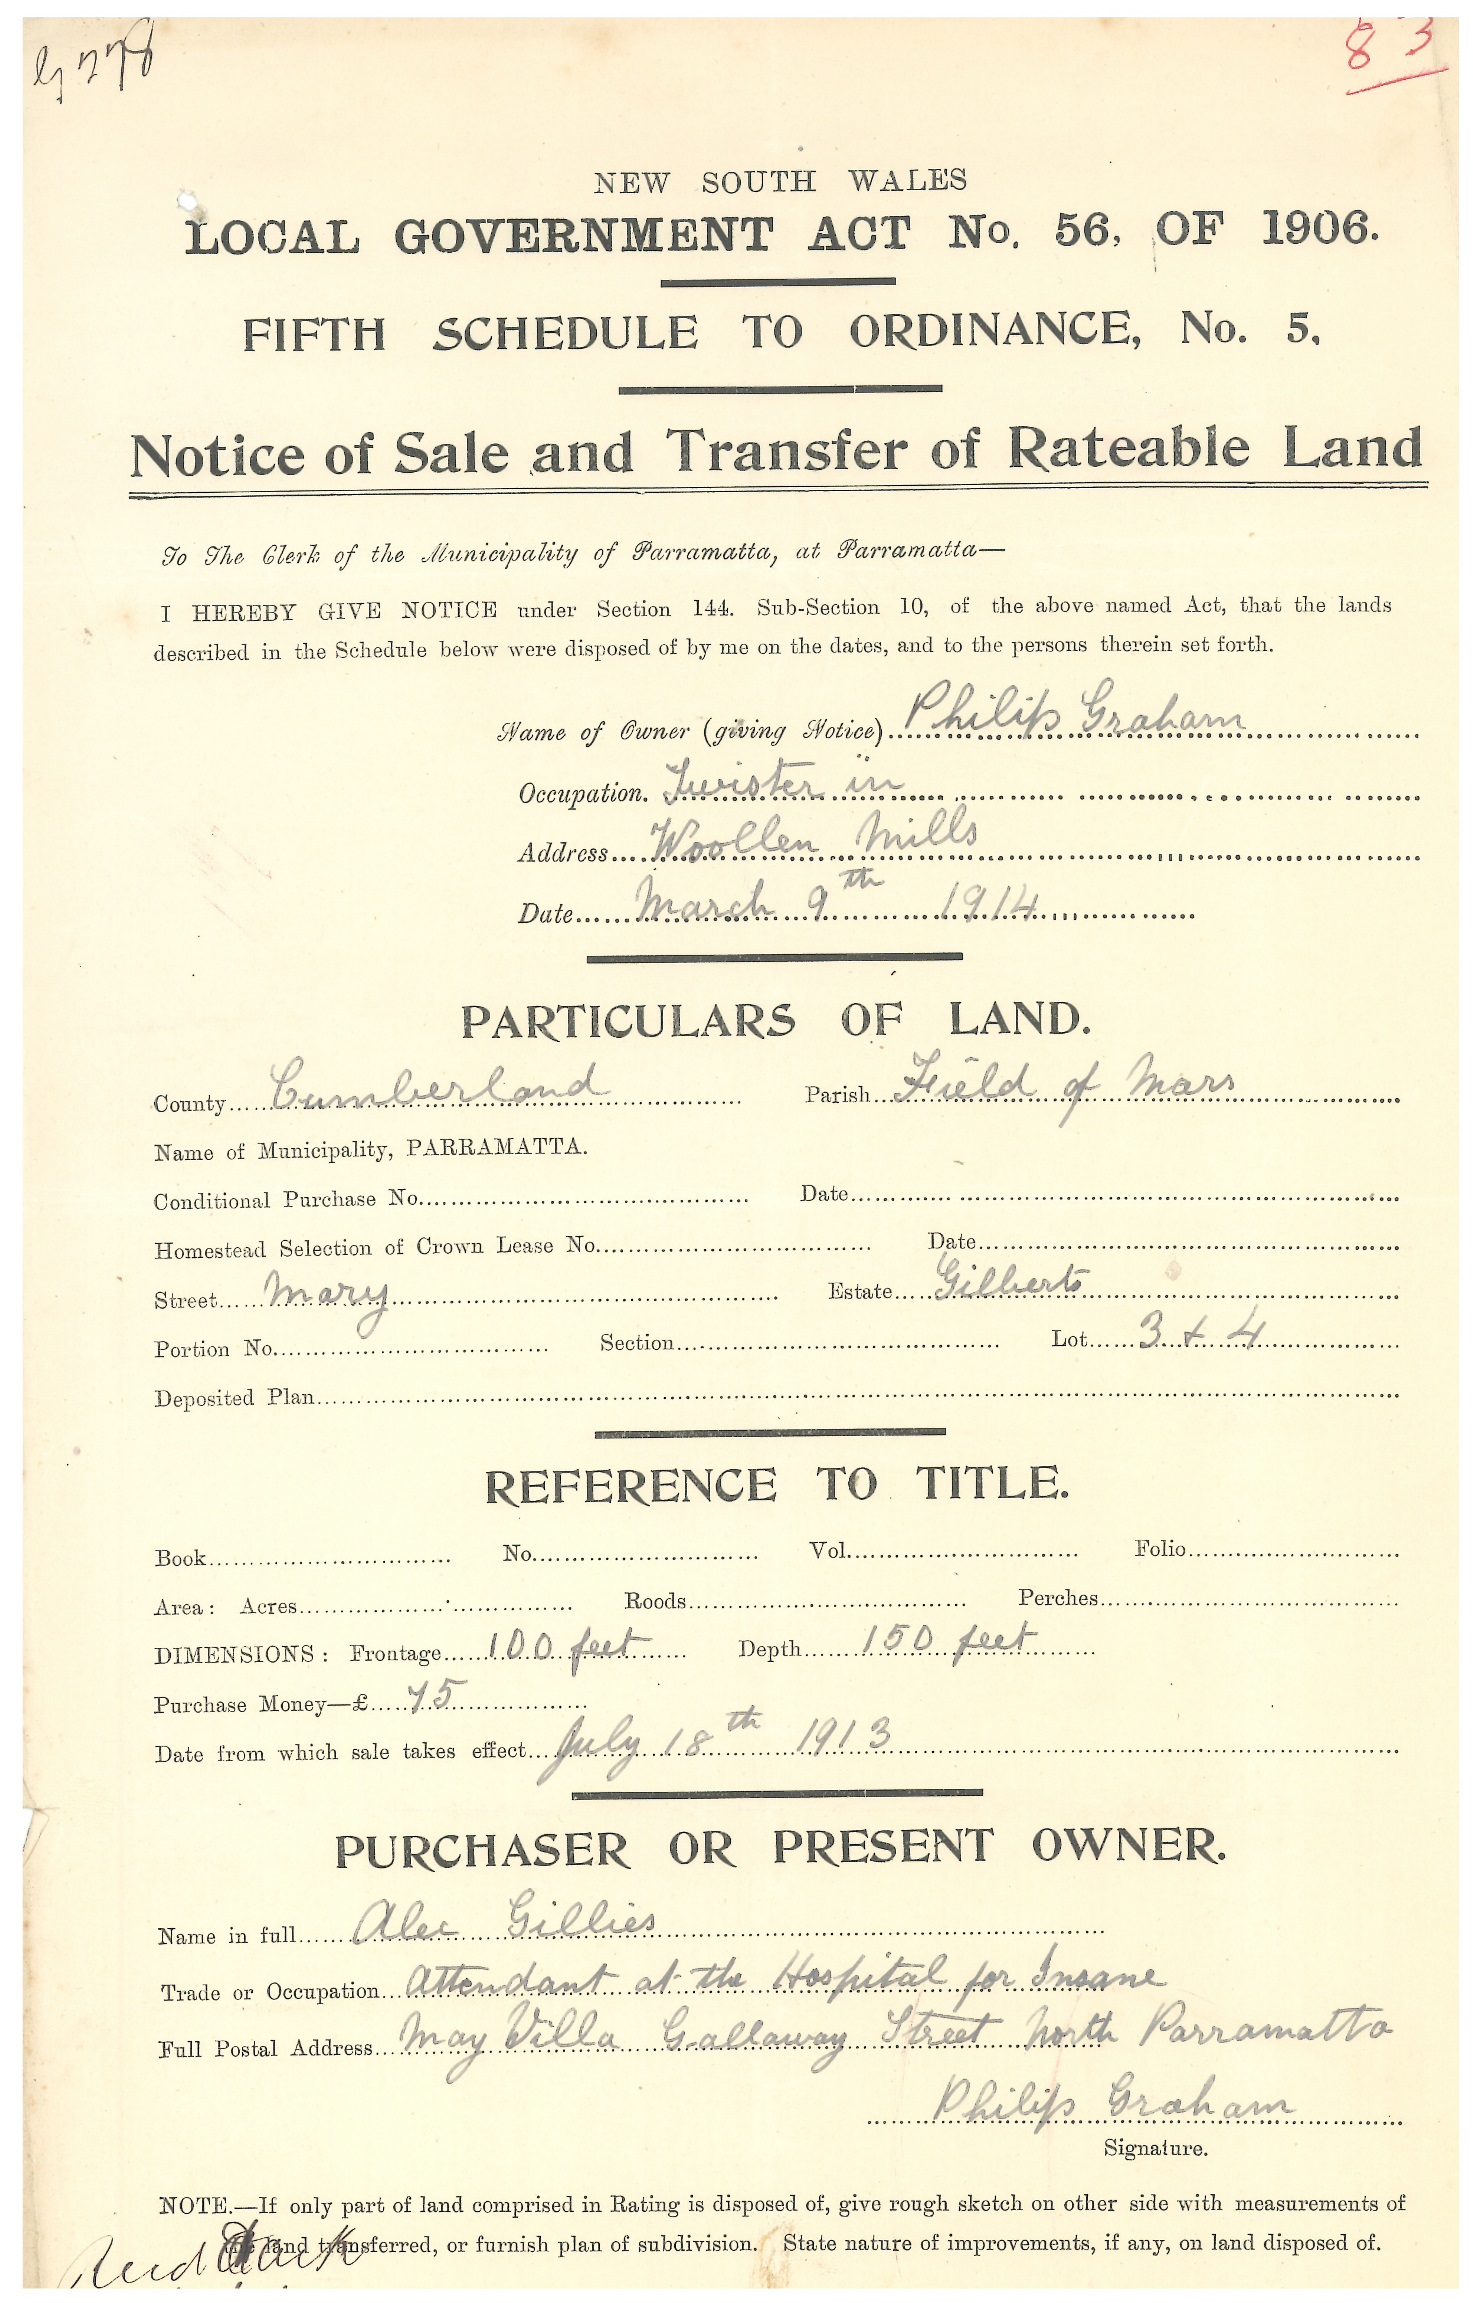 83
NEW SOUTH WALES
LOCAL GOVERNMENT ACT No. 56, OF 1906.
FIFTH SCHEDULE TO ORDINANCE, No. 5.
Notice of Sale and Transfer of Rateable Land
To The Clerk of the Municipality of Parramatta, at Parramatta—
I HEREBY GIVE NOTICE under Section 144. Sub-Section 10, of the above named Act, that the lands
described in the Schedule below were disposed of by me on the dates, and to the persons therein set forth.
Name of Owner (giving Notice) Philip Graham
Occupation. Twister in
Address Woollen Mills
Date March 9th 1914
PARTICULARS OF LAND.
County Cumberland Parish Field of Mars
Name of Municipality, PARRAMATTA.
Conditional Purchase No. Date
Homestead Selection of Crown Lease No. Date
Street Mary Estate Gilberts
Portion No. Section Lot 3 & 4
Deposited Plan
REFERENCE TO TITLE.
Book No. Vol. Folio
Area: Acres Roods Perches
DIMENSIONS: Frontage 100 feet Depth 150 feet
Purchase Money—£ 75
Date from which sale takes effect July 18th 1913
PURCHASER OR PRESENT OWNER.
Name in full Alec Gillies
Trade or Occupation Attendant at the Hospital for Insane
Full Postal Address May Villa Gallaway Street North Parramatta
Philip Graham
Signature.
NOTE.—If only part of land comprised in Rating is disposed of, give rough sketch on other side with measurements of
land transferred, or furnish plan of subdivision. State nature of improvements, if any, on land disposed of.